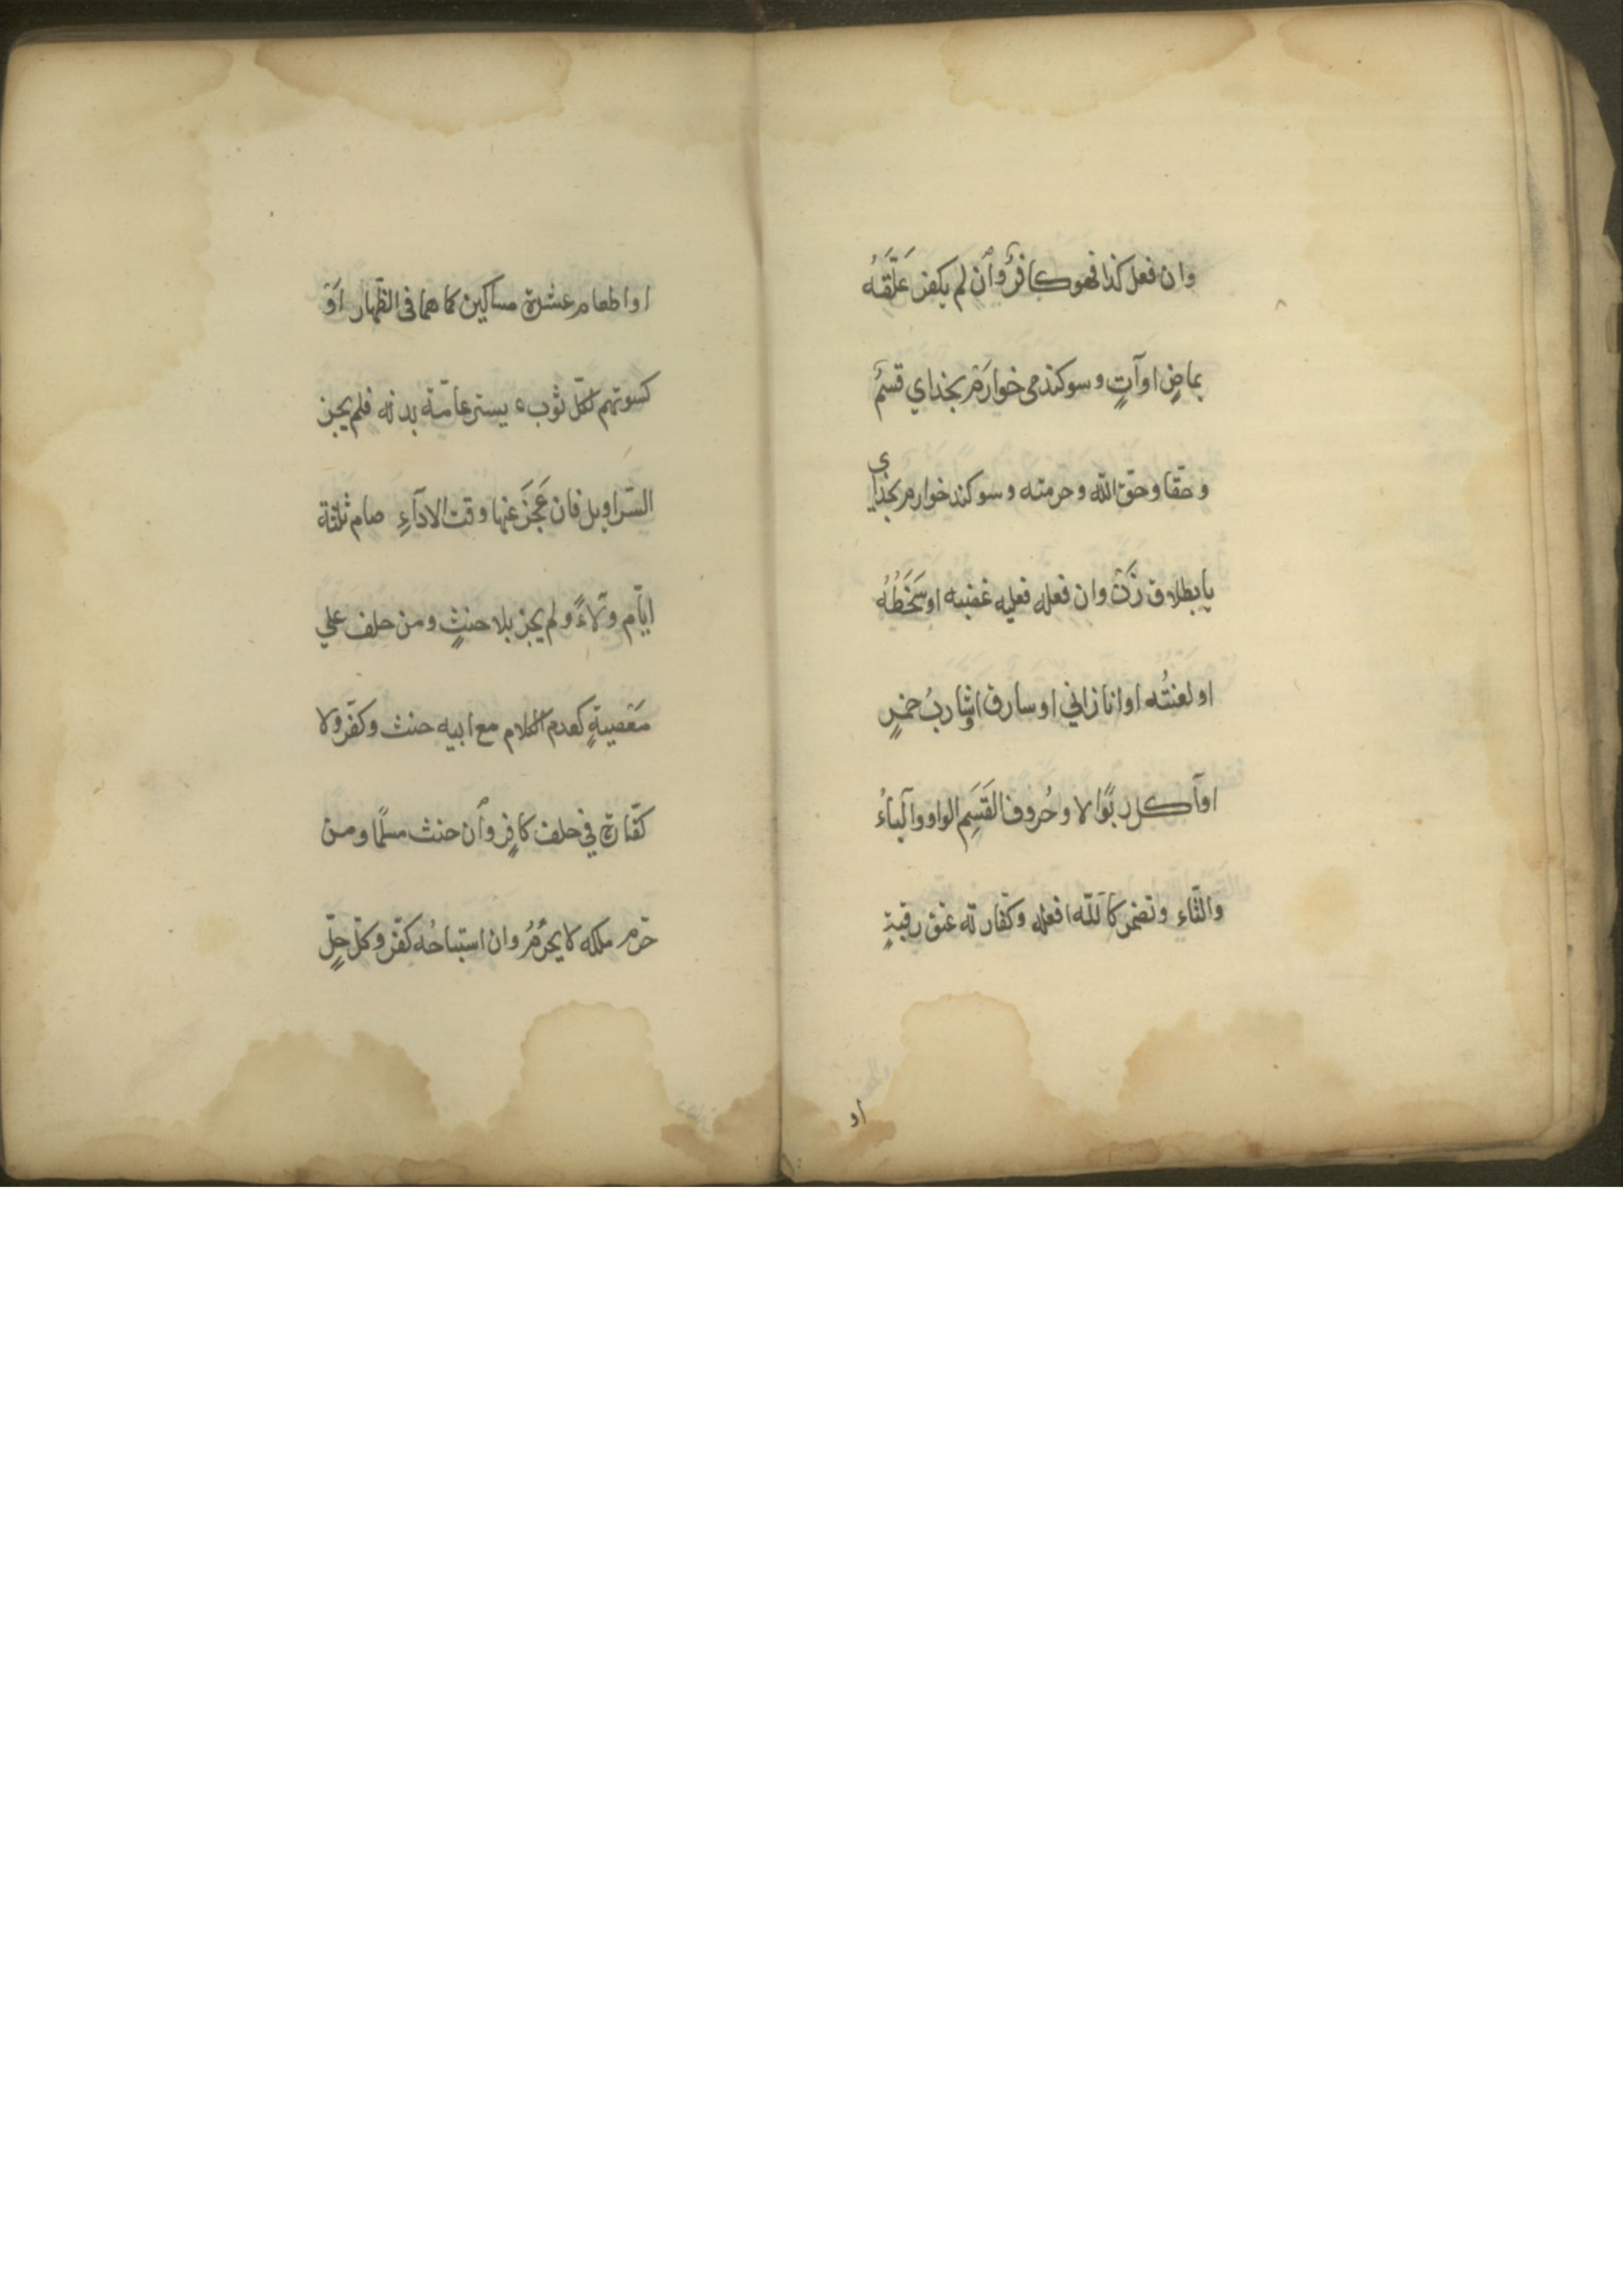 وان فعل كذا فهو كافرٌ وان لم يكفر عَلَّقَهُ
بماضٍ او آتٍ و سوكند مى خوارَمْ بخداي قسمٌ
و حقا و حقّ الله و حرمته و سوكند خوارم بخداى
يا بطلاق زَنْ وان فعله فعليه غضبه او سَخَطُهُ
او لعنتُه او انا زانٍي او سارق او شاربُ خمرٍ
او آكل ربوًا لا و حُروف القَسَمِ الواو والباءُ
والتّاء وتضمر كاَللّه افعله وكفارته عتق رقبةٍ
او
او اطعام عشرة مساكين كما هما فى الظّهار اَوْ
كسوتهم لكلّ ثوب يستر عامّة بدنه فلم يجز
السّراويل فان عَجَزَ عنها وقت الاداۤءِ صام ثلثة
ايّام وَلاءً ولم يجز بلا حنثٍ ومن حلف علي
مَعْصيةٍ كعدم الكلام مع ابيه حنث وكفّر ولا
كفّارة في حلف كافرٍ وان حنث مسلمًا ومن
حرّم ملكه لا يحرُمُ وان استباحُه كفّر وكلّ حِلٍّ